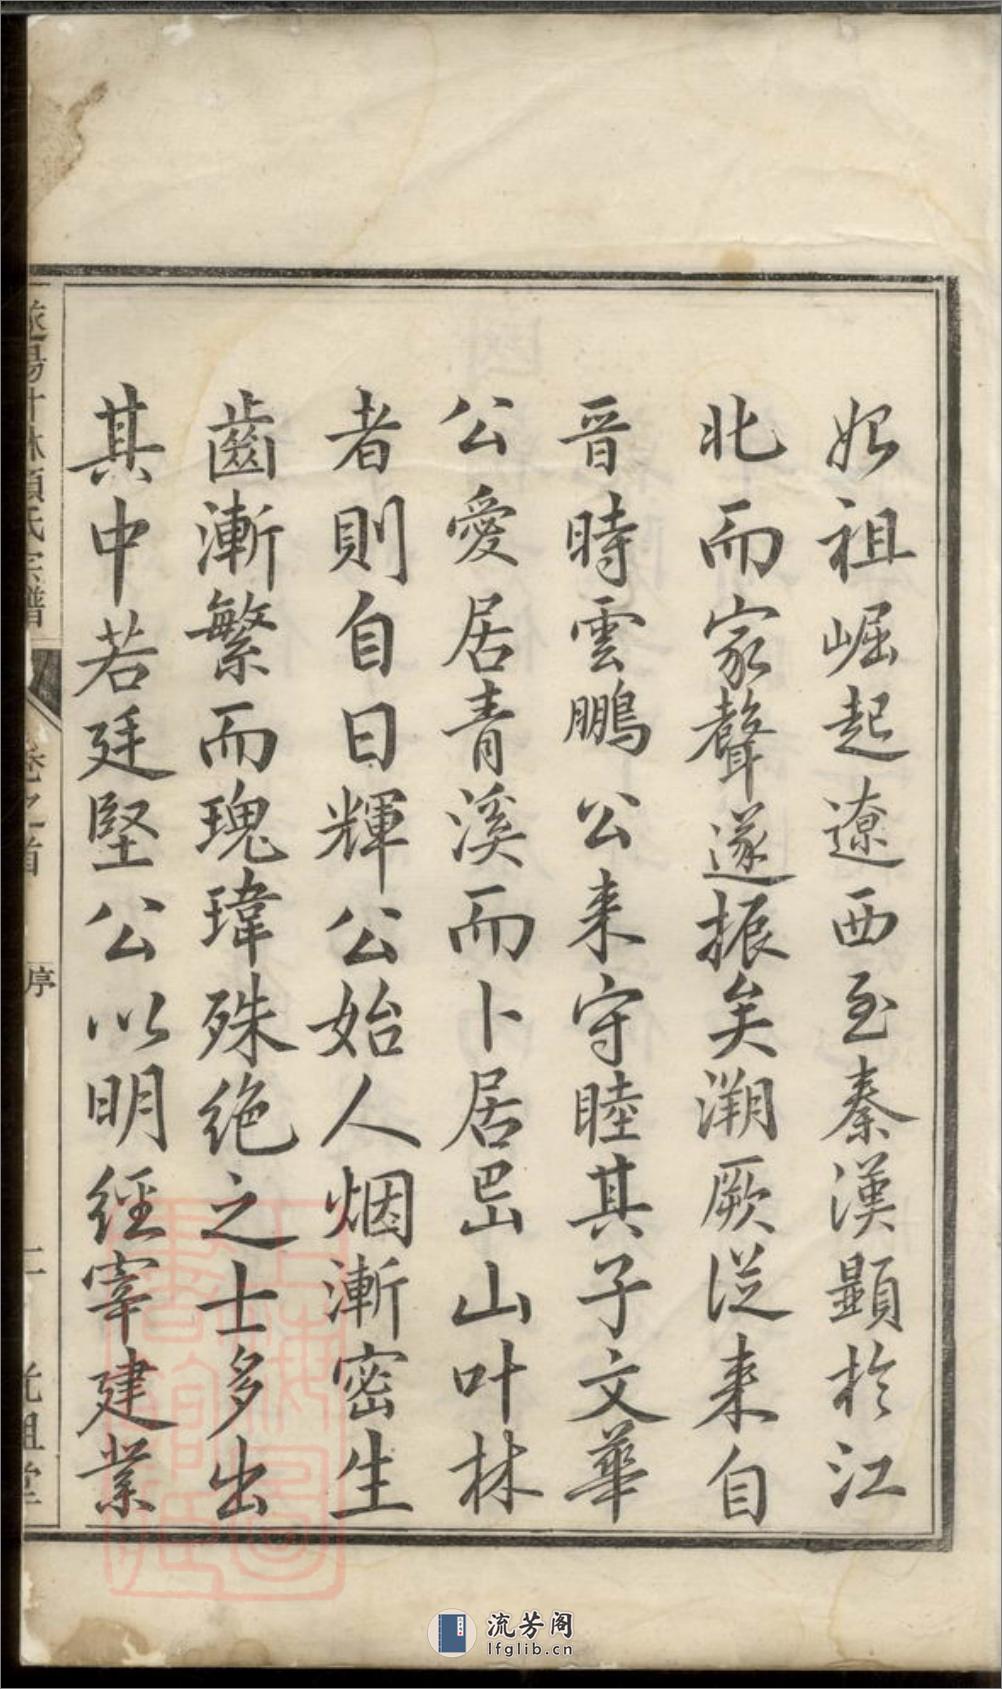 始祖崛起遼西至秦漢顯於江
北而家聲遂振矣溯厥從来自
晋時雲鵬公来守睦其子文華
公愛居青溪而卜居邑山叶林
者則自日輝公始人烟漸密生
齒漸繁而瑰瑋殊绝之士多出
其中若廷堅公以明經宰建業
氏宗譜
卷之首
序
流芳阁
lfglib.cn